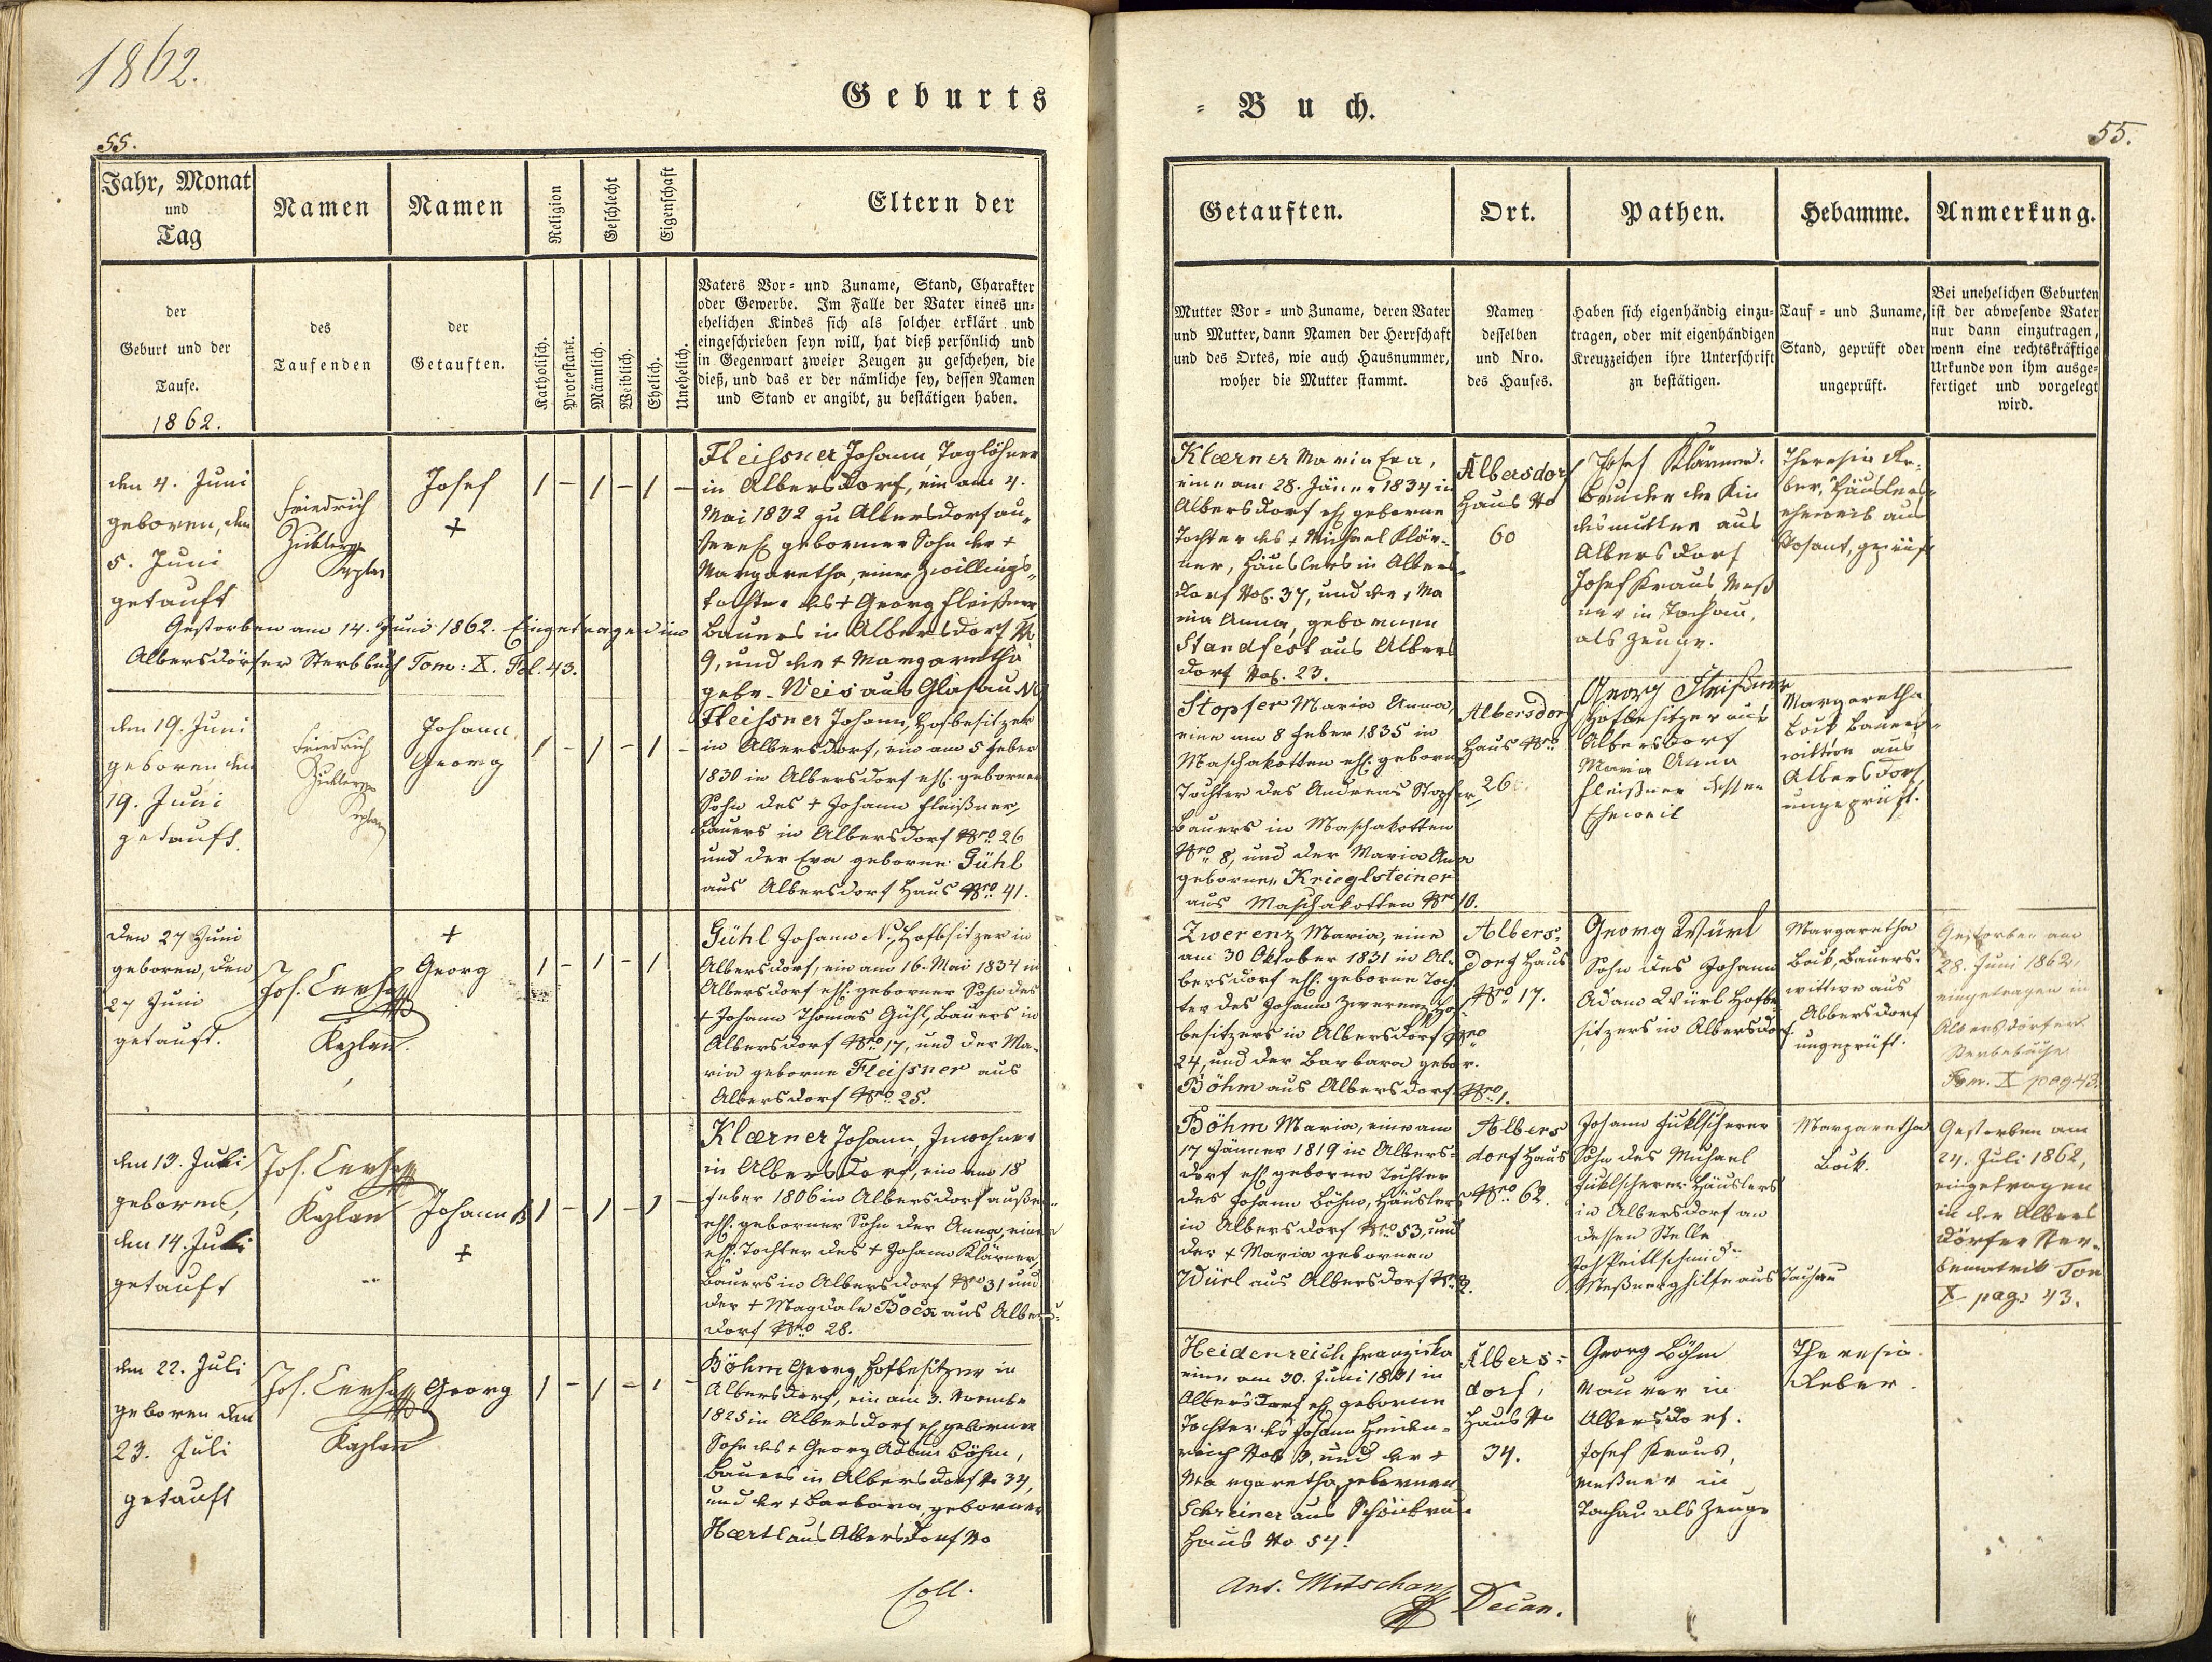 1862.
Geburts
= Buch.
55.
55.
Jahr, Monat
und
Tag
Namen
Namen
Religion
Geschlecht
Eigenschaft
Eltern der
Getauften.
Ort.
Pathen.
Hebamme.
Anmerkung.
der
Geburt und der
Taufe.
1862.
des
Taufenden
der
Getauften.
Katholisch.
Protestant.
Männlich.
Weiblich.
Ehelich.
Unehelich.
Vaters Vor- und Zuname, Stand, Charakter
oder Gewerbe. Im Falle der Vater eines un-
ehelichen Kindes sich als solcher erklärt und
eingeschrieben seyn will, hat dieß persönlich und
in Gegenwart zweier Zeugen zu geschehen, die
dieß, und das er der nämliche sey, dessen Namen
und Stand er angibt, zu bestätigen haben.
Mutter Vor- und Zuname, deren Vater
und Mutter, dann Namen der Herrschaft
und des Ortes, wie auch Hausnummer,
woher die Mutter stammt.
Namen
desselben
und Nro.
des Hauses.
Haben sich eigenhändig einzu-
tragen, oder mit eigenhändigen
Kreuzzeichen ihre Unterschrift
zu bestätigen.
Tauf- und Zuname,
Stand, geprüft oder
ungeprüft.
Bei unehelichen Geburten
ist der abwesende Vater
nur dann einzutragen,
wenn eine rechtskräftige
Urkunde von ihm ausge-
fertiget und vorgelegt
wird.
den 4. Juni
geboren, den
5. Juni
getauft
Friedrich
Josef
+
1 - 1 - 1 -
Fleissner Johann, Taglöhner
in Albersdorf, ein am 4.
Mai 1832 zu Albersdorf au-
ßereh. geborner Sohn der +
Margaretha, einer Zwillings-
tochter des + Georg Fleißner
Bauers in Albersdorf N
9, und der + Margaretha
gebr. Weis aus Glasau
Gestorben am 14. Juni 1862. Eingetragen im
Albersdörfer Sterbbuch Tom: X. Fol. 43.
Klærner Maria Eva,
eine am 28. Jänner 1834 in
Albersdorf eh. geborne
Tochter des + Michael Klär-
ner, Häuslers in Albers-
dorf No. 37, und der Ma
ria Anna, gebornen
Standfest aus Albers
dorf No. 23.
Albersdorf
Haus No
60
Josef Klärner.
Bruder der Kin
desmutter aus
Albersdorf
Josef Kraus, Meß
ner in Tachau,
als Zeuge.
Theresia Re-
ber, Häuslers-
eheweib aus
den 19. Juni
geboren den
19. Juni
getauft.
Friedrich
Johann
Georg
1 - 1 - 1 -
Fleissner Johann, Hofbesitzer
in Albersdorf, ein am 5 Feber
1830 in Albersdorf ehl. geborner
Sohn des + Johann Fleißner,
Bauers in Albersdorf Nro. 26
und der Eva geborne Gühl
aus Albersdorf Haus Nro. 41.
Stopfer Maria Anna,
eine am 8 Feber 1835 in
Maschakotten ehl. geborne
Tochter des Andreas Stopfer,
Bauers in Maschakotten
Nro. 8, und der Maria Anna
gebornen Krieglsteiner
aus Maschakotten Nro 10.
Albersdorf
Haus Nro.
26
Georg Fleißner
Hofbesitzer aus
Albersdorf
Maria Anna
Fleißner dessen
Eheweib
Margaretha
Bock Bauers-
wittwe aus
Albersdorf,
ungeprüft.
Den 27 Juni
geboren, den
27 Juni
getauft.
Jos. Cerha
Kaplan.
+
Georg
1 - 1 - 1
Gühl Johann N., Hofbesitzer in
Albersdorf, ein am 16. Mai 1834 in
Albersdorf ehl. geborner Sohn des
+ Johann Thomas Gühl, Bauers in
Albersdorf Nro. 17, und der Ma-
ria geborne Fleissner aus
Albersdorf Nro. 25.
Zwerenz Maria, eine
am 30 Oktober 1831 in Al-
bersdorf ehl. geborne Toch
ter des Johann Zwerenz Hof
besitzers in Albersdorf Nro
24, und der Barbara gebor.
Böhm aus Albersdorf Nro. 1.
Albers-
dorf Haus
Nro. 17.
Georg Würl
Sohn des Johann
Adam Würl Hofbe-
sitzers in Albersdorf.
Margaretha
Bock, Bauers-
wittwe aus
Albersdorf
ungeprüft.
Gestorben am
28. Juni 1862,
eingetragen in
Albersdörfer
Sterbebuche
Tom. X pag. 43.
den 13. Juli
geboren,
den 14. Juli
getauft
Jos. Cerha
Kaplan
Johann B
+
1 - 1 - 1 -
Klærner Johann, Inwohner
in Albersdorf, ein am 18
Feber 1806 in Albersdorf außer-
ehl. geborner Sohn der Anna, einer
ehl. Tochter des + Johann Klärner,
Bauers in Albersdorf Nro 31 und
der + Magdale Bock aus Albers-
dorf Nro. 28.
Böhm Maria, eine am
17 Jänner 1819 in Albers-
dorf ehl. geborne Tochter
des Johann Böhm, Häuslers
in Albersdorf Nro 53, und
der + Maria gebornen
Würl aus Albersdorf
Albers
dorf Haus
Nro. 62.
Johann
Sohn des Michael
Häuslers
in Albersdorf an
dessen Stelle
Meßnerghilfe aus Tachau
Margaretha
Bock.
Gestorben am
24. Juli 1862,
eingetragen
in der Albers
dörfer Ster-
bematrik Tom
X pag. 43.
den 22. Juli
geboren den
23. Juli
getauft
Jos. Cerha
Kaplan
Georg
1 - 1 - 1 -
Böhm Georg, Hofbesitzer in
Albersdorf, ein am 3. Novembr
1825 in Albersdorf eh. geborner
Sohn des + Georg Adam Böhm,
Bauers in Albersdorf No 34,
und der + Barbara, geborner
Hærtl aus Albersdorf No
Heidenreich Franziska
eine am 30. Juni 1831 in
Albersdorf eh. geborne
Tochter des Johann Heiden-
reich No. 3, und der +
Margaretha, gebornen
Schreiner aus
Haus No 54.
Albers-
dorf,
Haus No
34.
Georg Böhm
Maurer in
Albersdorf.
Josef Kraus,
Meßner in
Tachau als Zeuge
Theresia
Reber.
Coll.
Ant. Mitschan
Decan.